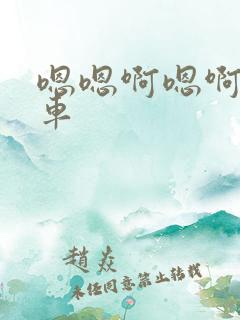 嗯嗯啊嗯啊
車
趙焱
未任同意禁止转载